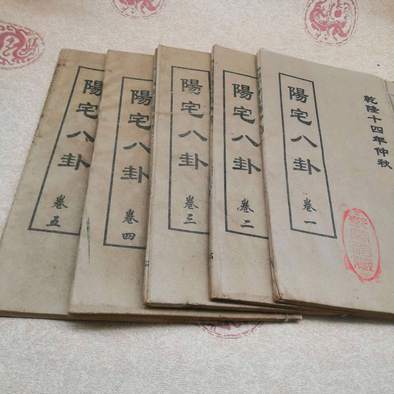 乾隆十四年仲秋
陽宅八卦 卷一
陽宅八卦 卷二
陽宅八卦 卷三
陽宅八卦 卷四
陽宅八卦 卷五